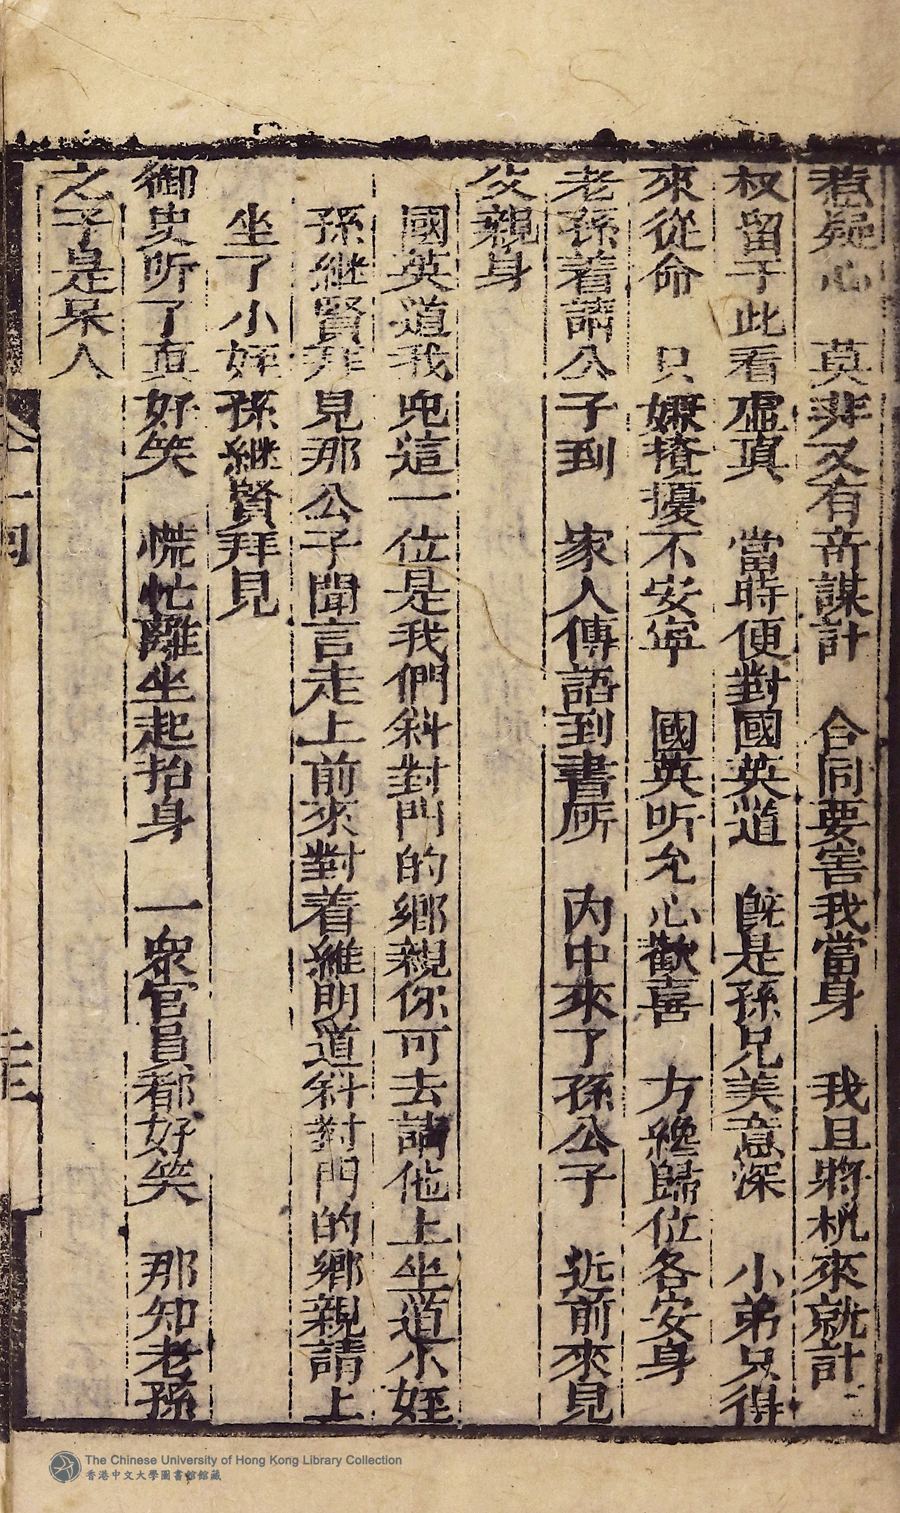 惹疑心　莫非又有奇謀計　合同要害我當身　我且將机來就計
权留于此看虛真　當時便對國英道　旣是孫兄美意深　小弟只得
來從命　只嫌攪擾不安寧　國英听允心歡喜　方纔歸位各安身
老孫着請公子到　家人傳語到書所　內中來了孫公子　近前來見
父親身
國英道我兒這一位是我們斜對門的鄉親你可去請他上坐道小姪
孫継賢拜見那公子聞言走上前來對着維明道斜對門的鄉親請上
坐了小姪孫継賢拜見
御史听了真好笑　慌忙離坐起抬身　一衆官員都好笑　那知老孫
之子是呆人
The Chinese University of Hong Kong Library Collection
香港中文大學圖書館館藏